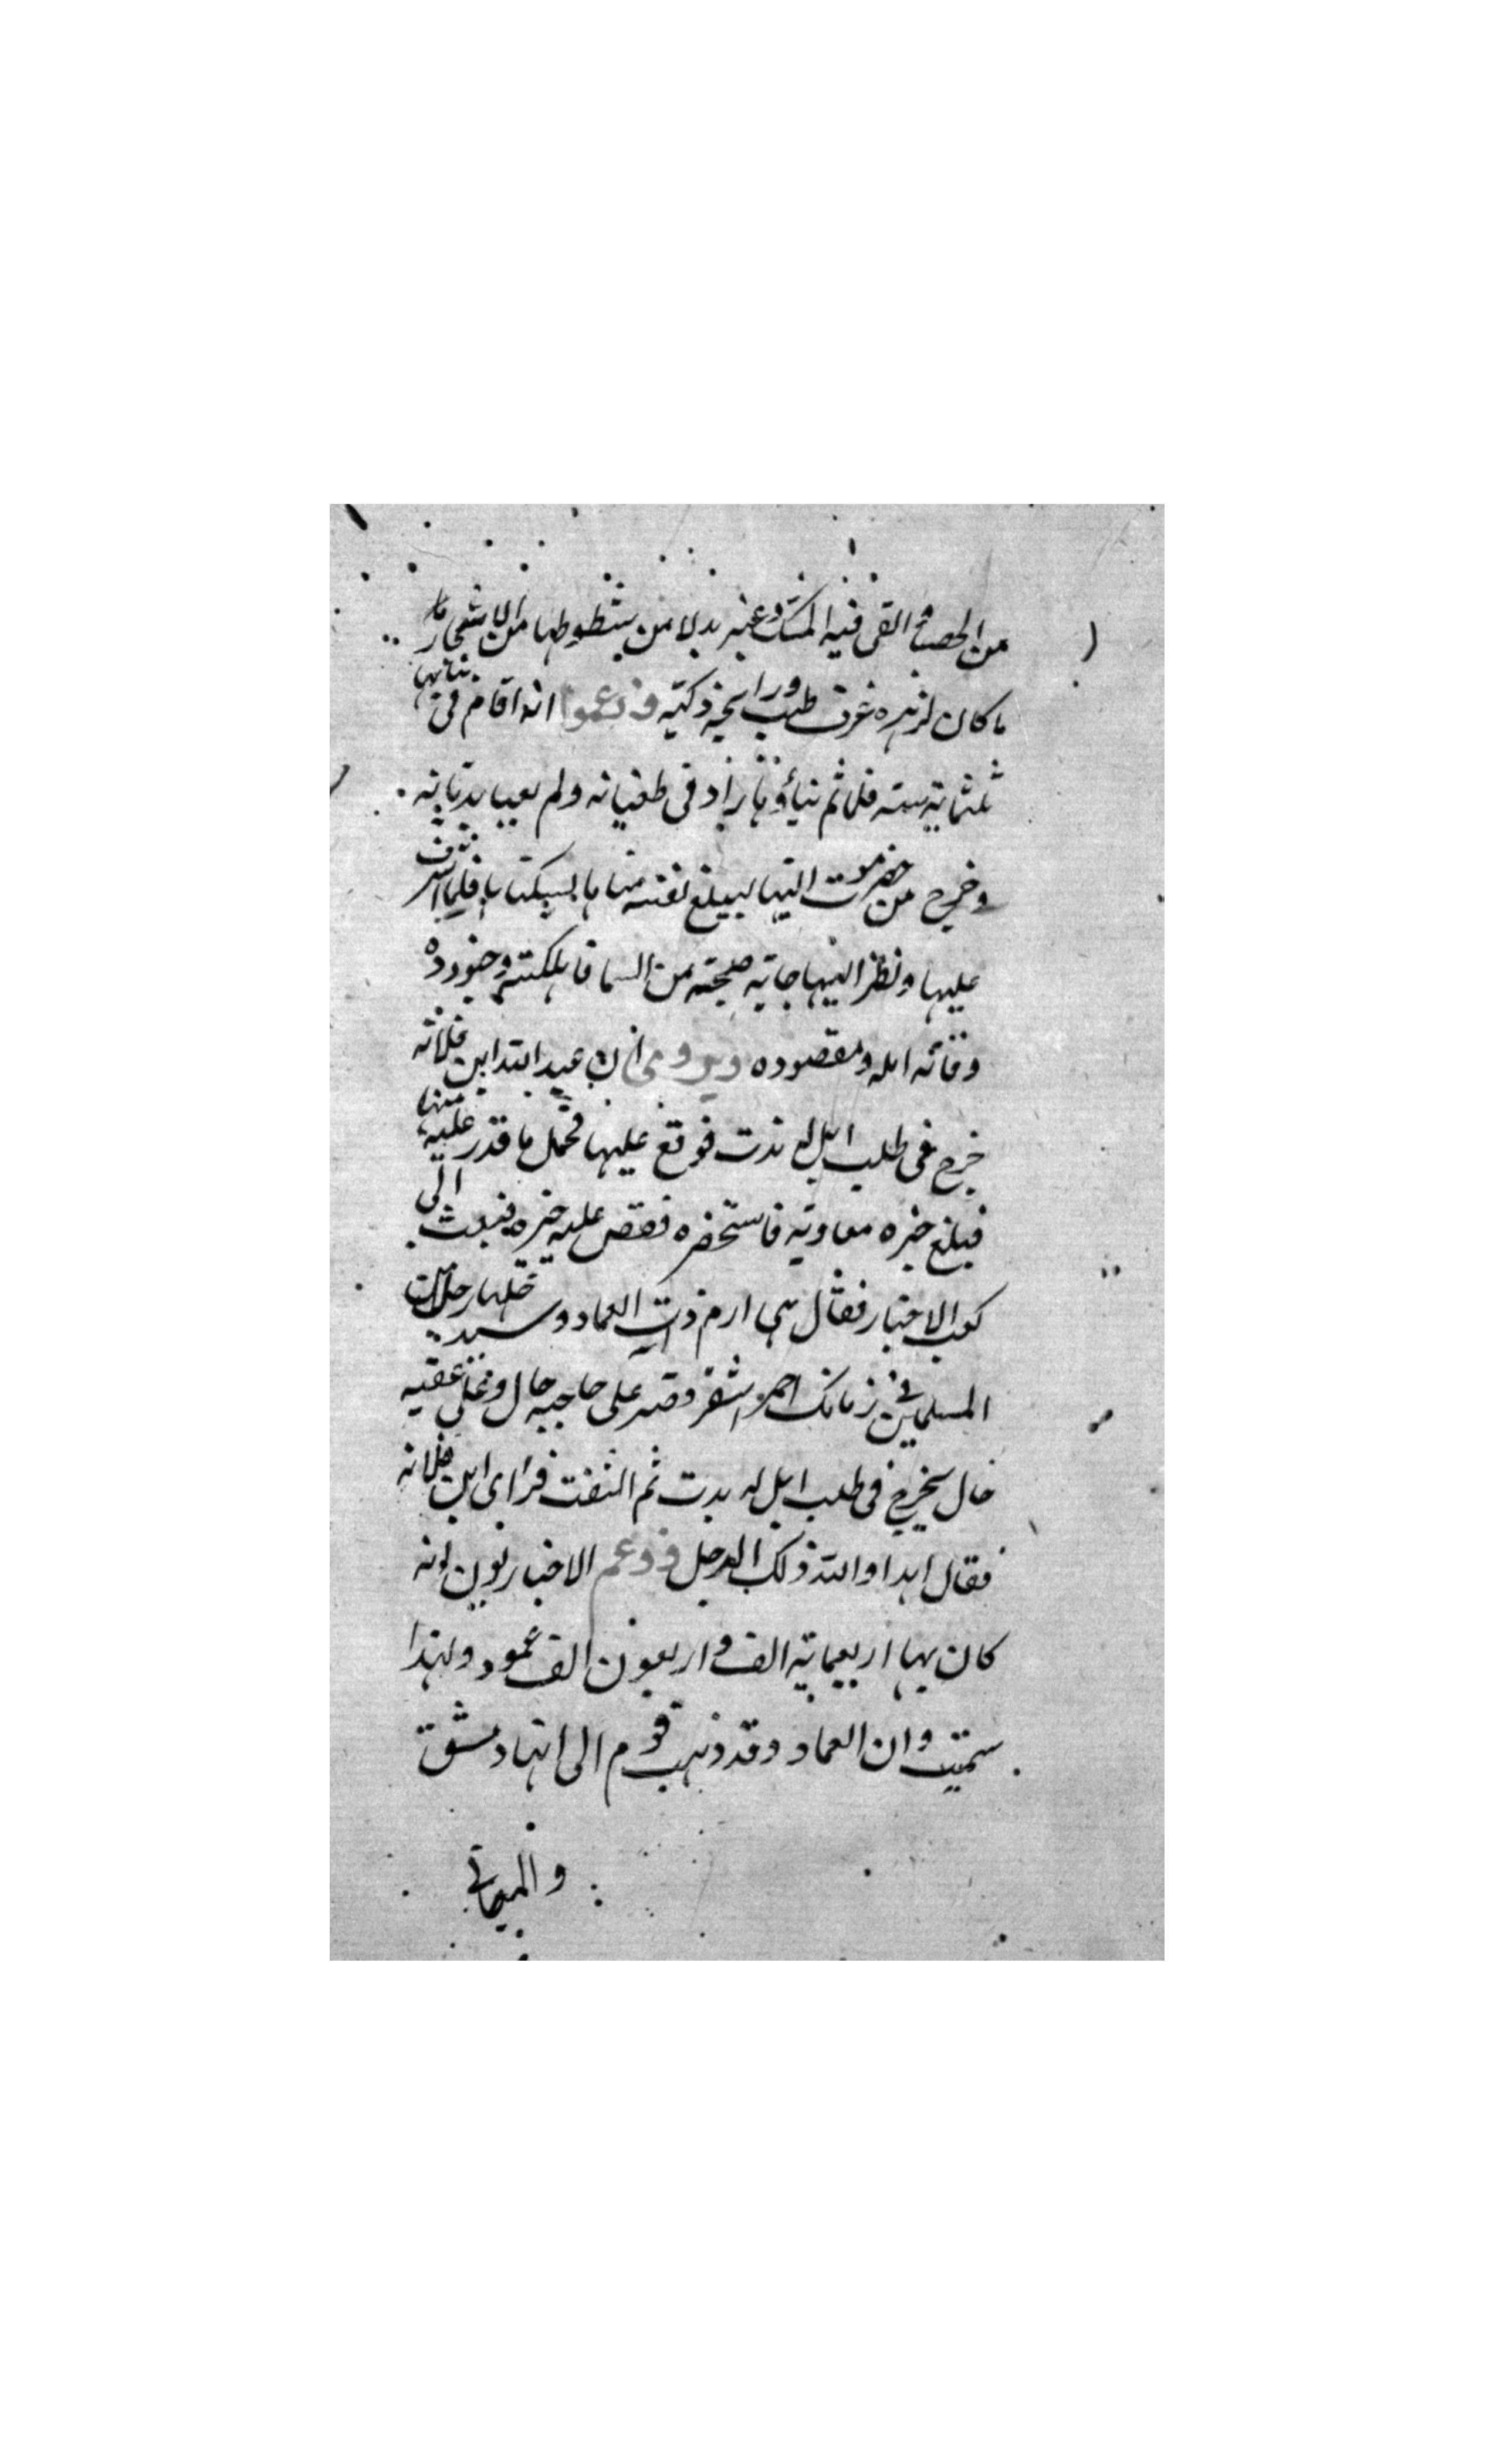 من الحصبا القى فيه المسك وعنبر بدلا من شطوطها من الاشجار ما
ما كان لزهره غرف طيب ورايحة ذكية وزعموا انه اقام فى بنائها
ثلثماية سنه فلما تم بناؤها زاد فى طغيانه ولم يعبا بديانه
وخرج من حضرموت اليها ليبلغ نفسه مناها بسكناها فلما اشرف
عليها ونظر اليها جاته صيحة من السما فاهلكته وجنوده
وفاته امله ومقصوده ويروى ان عبد الله ابن قلابه
خرج فى طلب ابل له ندت فوقع عليها فحمل ما قدر عليه منها
فبلغ خبره معاوية فاستحضره فقص عليه خبره فبعث الى
كعب الاحبار فقال هى ارم ذات العماد وسيدخلها رجل من
المسلمين فى زمانك احمر اشقر قصير على حاجبه خال وعلى عقبه
خال يخرج فى طلب ابل له ندت ثم التفت فراى ابن قلابه
فقال هذا والله ذلك الرجل وزعم الاخباريون انه
كان بها اربعماية الف واربعون الف عمود ولهذا
سميت وان العماد وقد ذهب قوم الى انها دمشق